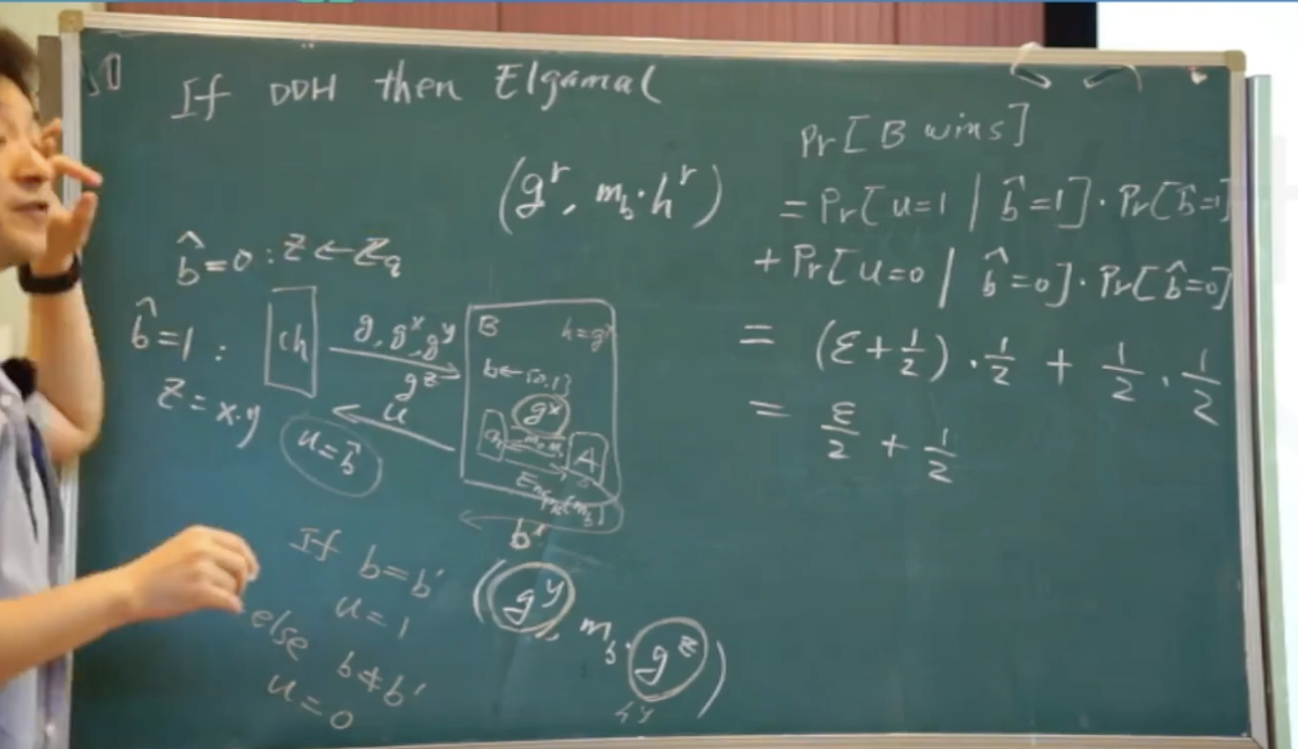 If DDH then Elgamal
(g^r, m_b·h^r)
b̂=0 : Z ← Z_q
b̂=1 :
Z = x·y
Ch
g, g^x, g^y
g^z
u
u=b̂
B
h=g^x
b←{0,1}
g^x
Ch
m_0, m_1
A
Enc_pk(m_b)
b'
If b=b'
u=1
else b≠b'
u=0
(g^y, m_b·g^z)
h^y
Pr[B wins]
= Pr[u=1 | b̂=1]·Pr[b̂=1]
+ Pr[u=0 | b̂=0]·Pr[b̂=0]
= (ε+1/2)·1/2 + 1/2·1/2
= ε/2 + 1/2